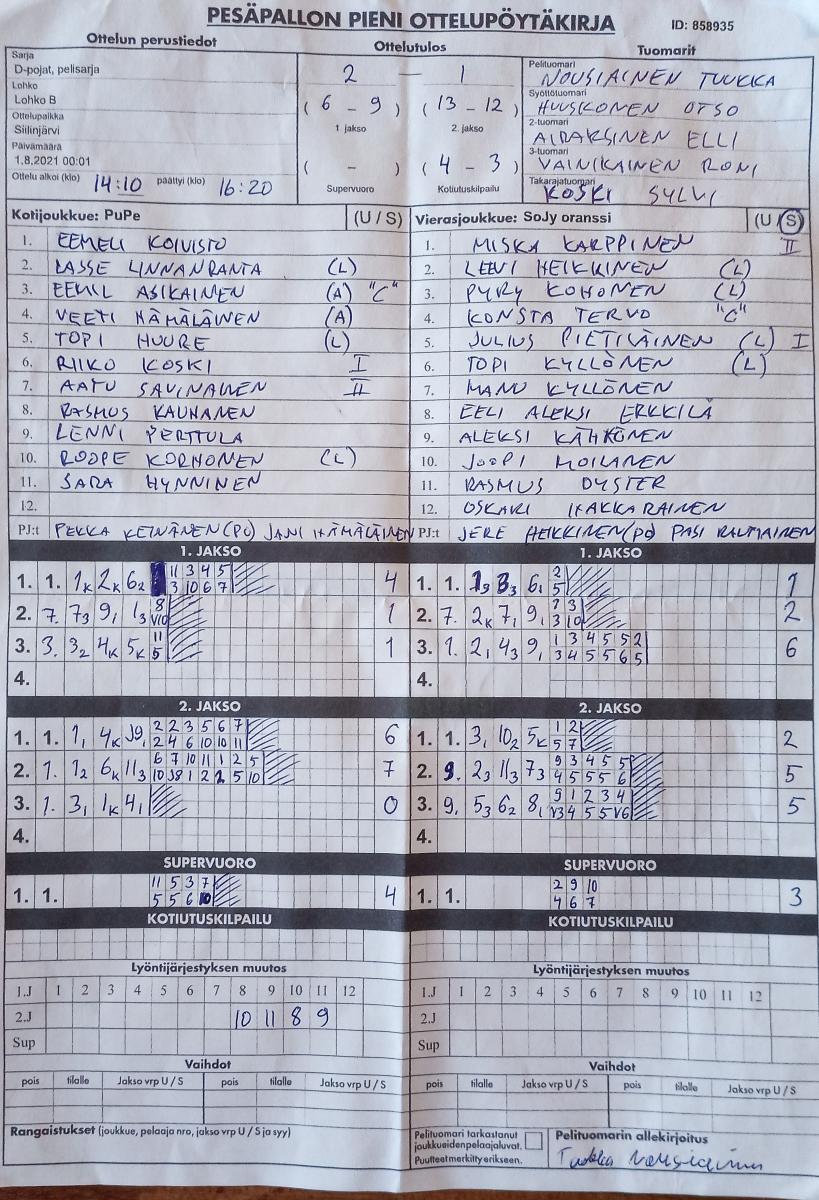 PESÄPALLON PIENI OTTELUPÖYTÄKIRJA ID: 858935
Ottelun perustiedot Ottelutulos Tuomarit
Sarja
D-pojat, pelisarja
Lohko
Lohko B
Ottelupaikka
Siilinjärvi
Päivämäärä
1.8.2021 00:01
Ottelu alkoi (klo) 14:10 päättyi (klo) 16:20
2 — 1
( 6 - 9 ) ( 13 - 12 )
1 jakso 2. jakso
( - ) ( 4 - 3 )
Supervuoro Kotiutuskilpailu
Pelituomari
NOUSIAINEN TUUKKA
Syöttötuomari
HUUSKONEN OTSO
2-tuomari
AIRAKSINEN ELLI
3-tuomari
VAINIKAINEN RONI
Takarajatuomari
KOSKI SYLVI
Kotijoukkue: PuPe (U / S)
1. EEMELI KOIVISTO
2. LASSE LINNANRANTA (L)
3. EEMIL ASIKAINEN (A) "C"
4. VEETI HÄMÄLÄINEN (A)
5. TOPI HUURE (L)
6. RIIKO KOSKI I
7. AATU SAVINAINEN II
8. RASMUS KAUHANEN
9. LENNI PERTTULA
10. ROOPE KORHONEN (L)
11. SARA HYNNINEN
12.
PJ:t PEKKA KEINÄNEN (PÖ) JANI HÄMÄLÄINEN
Vierasjoukkue: SoJy oranssi (U / S)
1. MISKA KARPPINEN II
2. LEEVI HEIKKINEN (L)
3. PYRY KOHONEN (L)
4. KONSTA TERVO "C"
5. JULIUS PIETILÄINEN (L) I
6. TOPI KYLLÖNEN (L)
7. MANU KYLLÖNEN
8. EELI ALEKSI ERKKILÄ
9. ALEKSI KÄHKÖNEN
10. JOOPI MOILANEN
11. RASMUS DYSTER
12. OSKARI HAKKARAINEN
PJ:t JERE HEIKKINEN (PÖ) PASI RAUTIAINEN
1. JAKSO
1. 1. 1K 2K 62 11 3 4 5 4
3 10 6 7
2. 7. 73 91 13 8 1
V10
3. 3. 32 4K 5K 11 1
5
4.
1. JAKSO
1. 1. 61 2 1
5
2. 7. 2K 71 91 2
3 10
3. 1. 21 43 91 1 3 4 5 5 2 6
3 4 5 5 6 5
4.
2. JAKSO
1. 1. 11 4K J91 2 2 3 5 6 7 6
2 4 6 10 10 11
2. 1. 12 6K 113 6 7 10 11 1 2 5 7
10 J8 1 2 2 5 10
3. 1. 31 1K 41 0
4.
2. JAKSO
1. 1. 31 102 5K 1 2 2
5 7
2. 9. 23 113 73 9 3 4 5 5 5
4 5 5 5 6
3. 9. 53 62 81 9 1 2 3 4 5
V3 4 5 5 V6
4.
SUPERVUORO
1. 1. 11 5 3 7 4
5 5 6 10
SUPERVUORO
1. 1. 2 9 10 3
4 6 7
KOTIUTUSKILPAILU
KOTIUTUSKILPAILU
Lyöntijärjestyksen muutos
1.J 1 2 3 4 5 6 7 8 9 10 11 12
2.J 10 11 8 9
Sup
Lyöntijärjestyksen muutos
1.J 1 2 3 4 5 6 7 8 9 10 11 12
2.J
Sup
Vaihdot
pois tilalle Jakso vrp U / S pois tilalle Jakso vrp U / S
Vaihdot
pois tilalle Jakso vrp U / S pois tilalle Jakso vrp U / S
Rangaistukset (joukkue, pelaaja nro, jakso vrp U / S ja syy)
Pelituomari tarkastanut
joukkueiden pelaajaluvat.
Puutteet merkitty erikseen.
Pelituomarin allekirjoitus
Tuukka Nousiainen